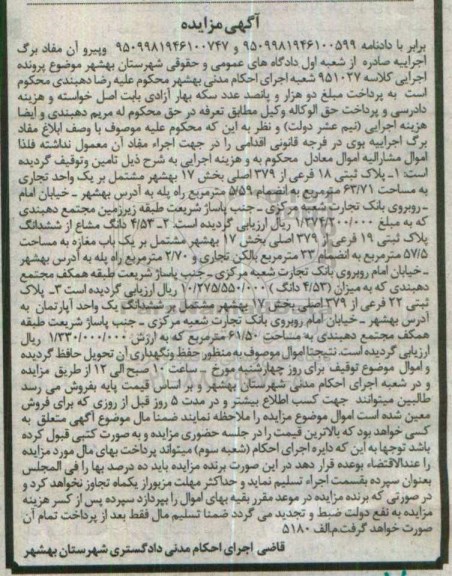 آگهی مزایده
برابر با دادنامه ۹۵۰۹۹۸۱۹۴۶۱۰۰۵۹۹ و ۹۵۰۹۹۸۱۹۴۶۱۰۰۷۴۷ وپیرو آن مفاد برگ
اجراییه صادره از شعبه اول دادگاه های عمومی و حقوقی شهرستان بهشهر موضوع پرونده
اجرایی کلاسه ۹۵۱۰۲۷ شعبه اجرای احکام مدنی بهشهر محکوم علیه رضا دهبندی محکوم
است به پرداخت مبلغ دو هزار و پانصد عدد سکه بهار آزادی بابت اصل خواسته و هزینه
دادرسی و پرداخت حق الوکاله وکیل مطابق تعرفه در حق محکوم له مریم دهبندی و ایضا
هزینه اجرایی (نیم عشر دولت) و نظر به این که محکوم علیه موصوف با وصف ابلاغ مفاد
برگ اجراییه بوی در فرجه قانونی اقدامی را در جهت اجراء مفاد آن معمول نداشته فلذا
اموال مشارالیه اموال معادل محکوم به و هزینه اجرایی به شرح ذیل تامین وتوقیف گردیده
است: ۱ـ پلاک ثبتی ۱۸ فرعی از ۳۷۹ اصلی بخش ۱۷ بهشهر مشتمل بر یک واحد تجاری
به مساحت ۶۳/۷۱ مترمربع به انضمام ۵/۵۹ مترمربع راه پله به آدرس بهشهر ـ خیابان امام
ـ روبروی بانک تجارت شعبه مرکزی ـ جنب پاساژ شریعت طبقه زیرزمین مجتمع دهبندی
که به مبلغ ۱/۳۷۴/۲۰۰/۰۰۰ ریال ارزیابی گردیده است. ۲ـ ۴/۵۳ دانگ مشاع از ششدانگ
پلاک ثبتی ۱۹ فرعی از ۳۷۹ اصلی بخش ۱۷ بهشهر مشتمل بر یک باب مغازه به مساحت
۵۷/۵ مترمربع به انضمام ۳۳ مترمربع بالکن تجاری و ۲/۷۰ مترمربع راه پله به آدرس بهشهر
ـ خیابان امام روبروی بانک تجارت شعبه مرکزی ـ جنب پاساژ شریعت طبقه همکف مجتمع
دهبندی که به میزان (۴/۵۳ دانگ) ۱۰/۲۷۵/۵۵۰/۰۰۰ ریال ارزیابی گردیده است ۳ـ پلاک
ثبتی ۲۲ فرعی از ۳۷۹ اصلی بخش ۱۷ بهشهر مشتمل بر ششدانگ یک واحد آپارتمان به
آدرس بهشهر ـ خیابان امام روبروی بانک تجارت شعبه مرکزی ـ جنب پاساژ شریعت طبقه
همکف مجتمع دهبندی به مساحت ۶۱/۵۰ مترمربع که به ارزش ۱/۳۳۰/۰۰۰/۰۰۰ ریال
ارزیابی گردیده است. نتیجتا اموال موصوف به منظور حفظ ونگهداری آن تحویل حافظ گردیده
و اموال موضوع توقیف برای روز چهارشنبه مورخ ـ ساعت ۱۰ صبح الی ۱۲ از طریق مزایده
و در شعبه اجرای احکام مدنی شهرستان بهشهر و بر اساس قیمت پایه بفروش می رسد
طالبین میتوانند جهت کسب اطلاع بیشتر و در مدت ۵ روز قبل از روزی که برای فروش
معین شده است اموال موضوع مزایده را ملاحظه نمایند ضمنا مال موضوع آگهی متعلق به
کسی خواهد بود که بالاترین قیمت را در جلسه حضوری مزایده و به صورت کتبی قبول کرده
باشد توجها به این که دایره اجرای احکام (شعبه سوم) میتواند پرداخت بهای مال مورد مزایده
را عندالاقتضاء بوعده قرار دهد در این صورت برنده مزایده باید ده درصد بها را فی المجلس
بعنوان سپرده بقسمت اجراء تسلیم نماید و حداکثر مهلت مزبور از یکماه تجاوز نخواهد کرد و
در صورتی که برنده مزایده در موعد مقرر بقیه بهای اموال را نپردازد سپرده پس از کسر هزینه
مزایده به نفع دولت ضبط و تجدید می گردد ضمنا تسلیم مال فقط بعد از پرداخت تمام آن
صورت خواهد گرفت.م.الف ۵۱۸۰
قاضی اجرای احکام مدنی دادگستری شهرستان بهشهر